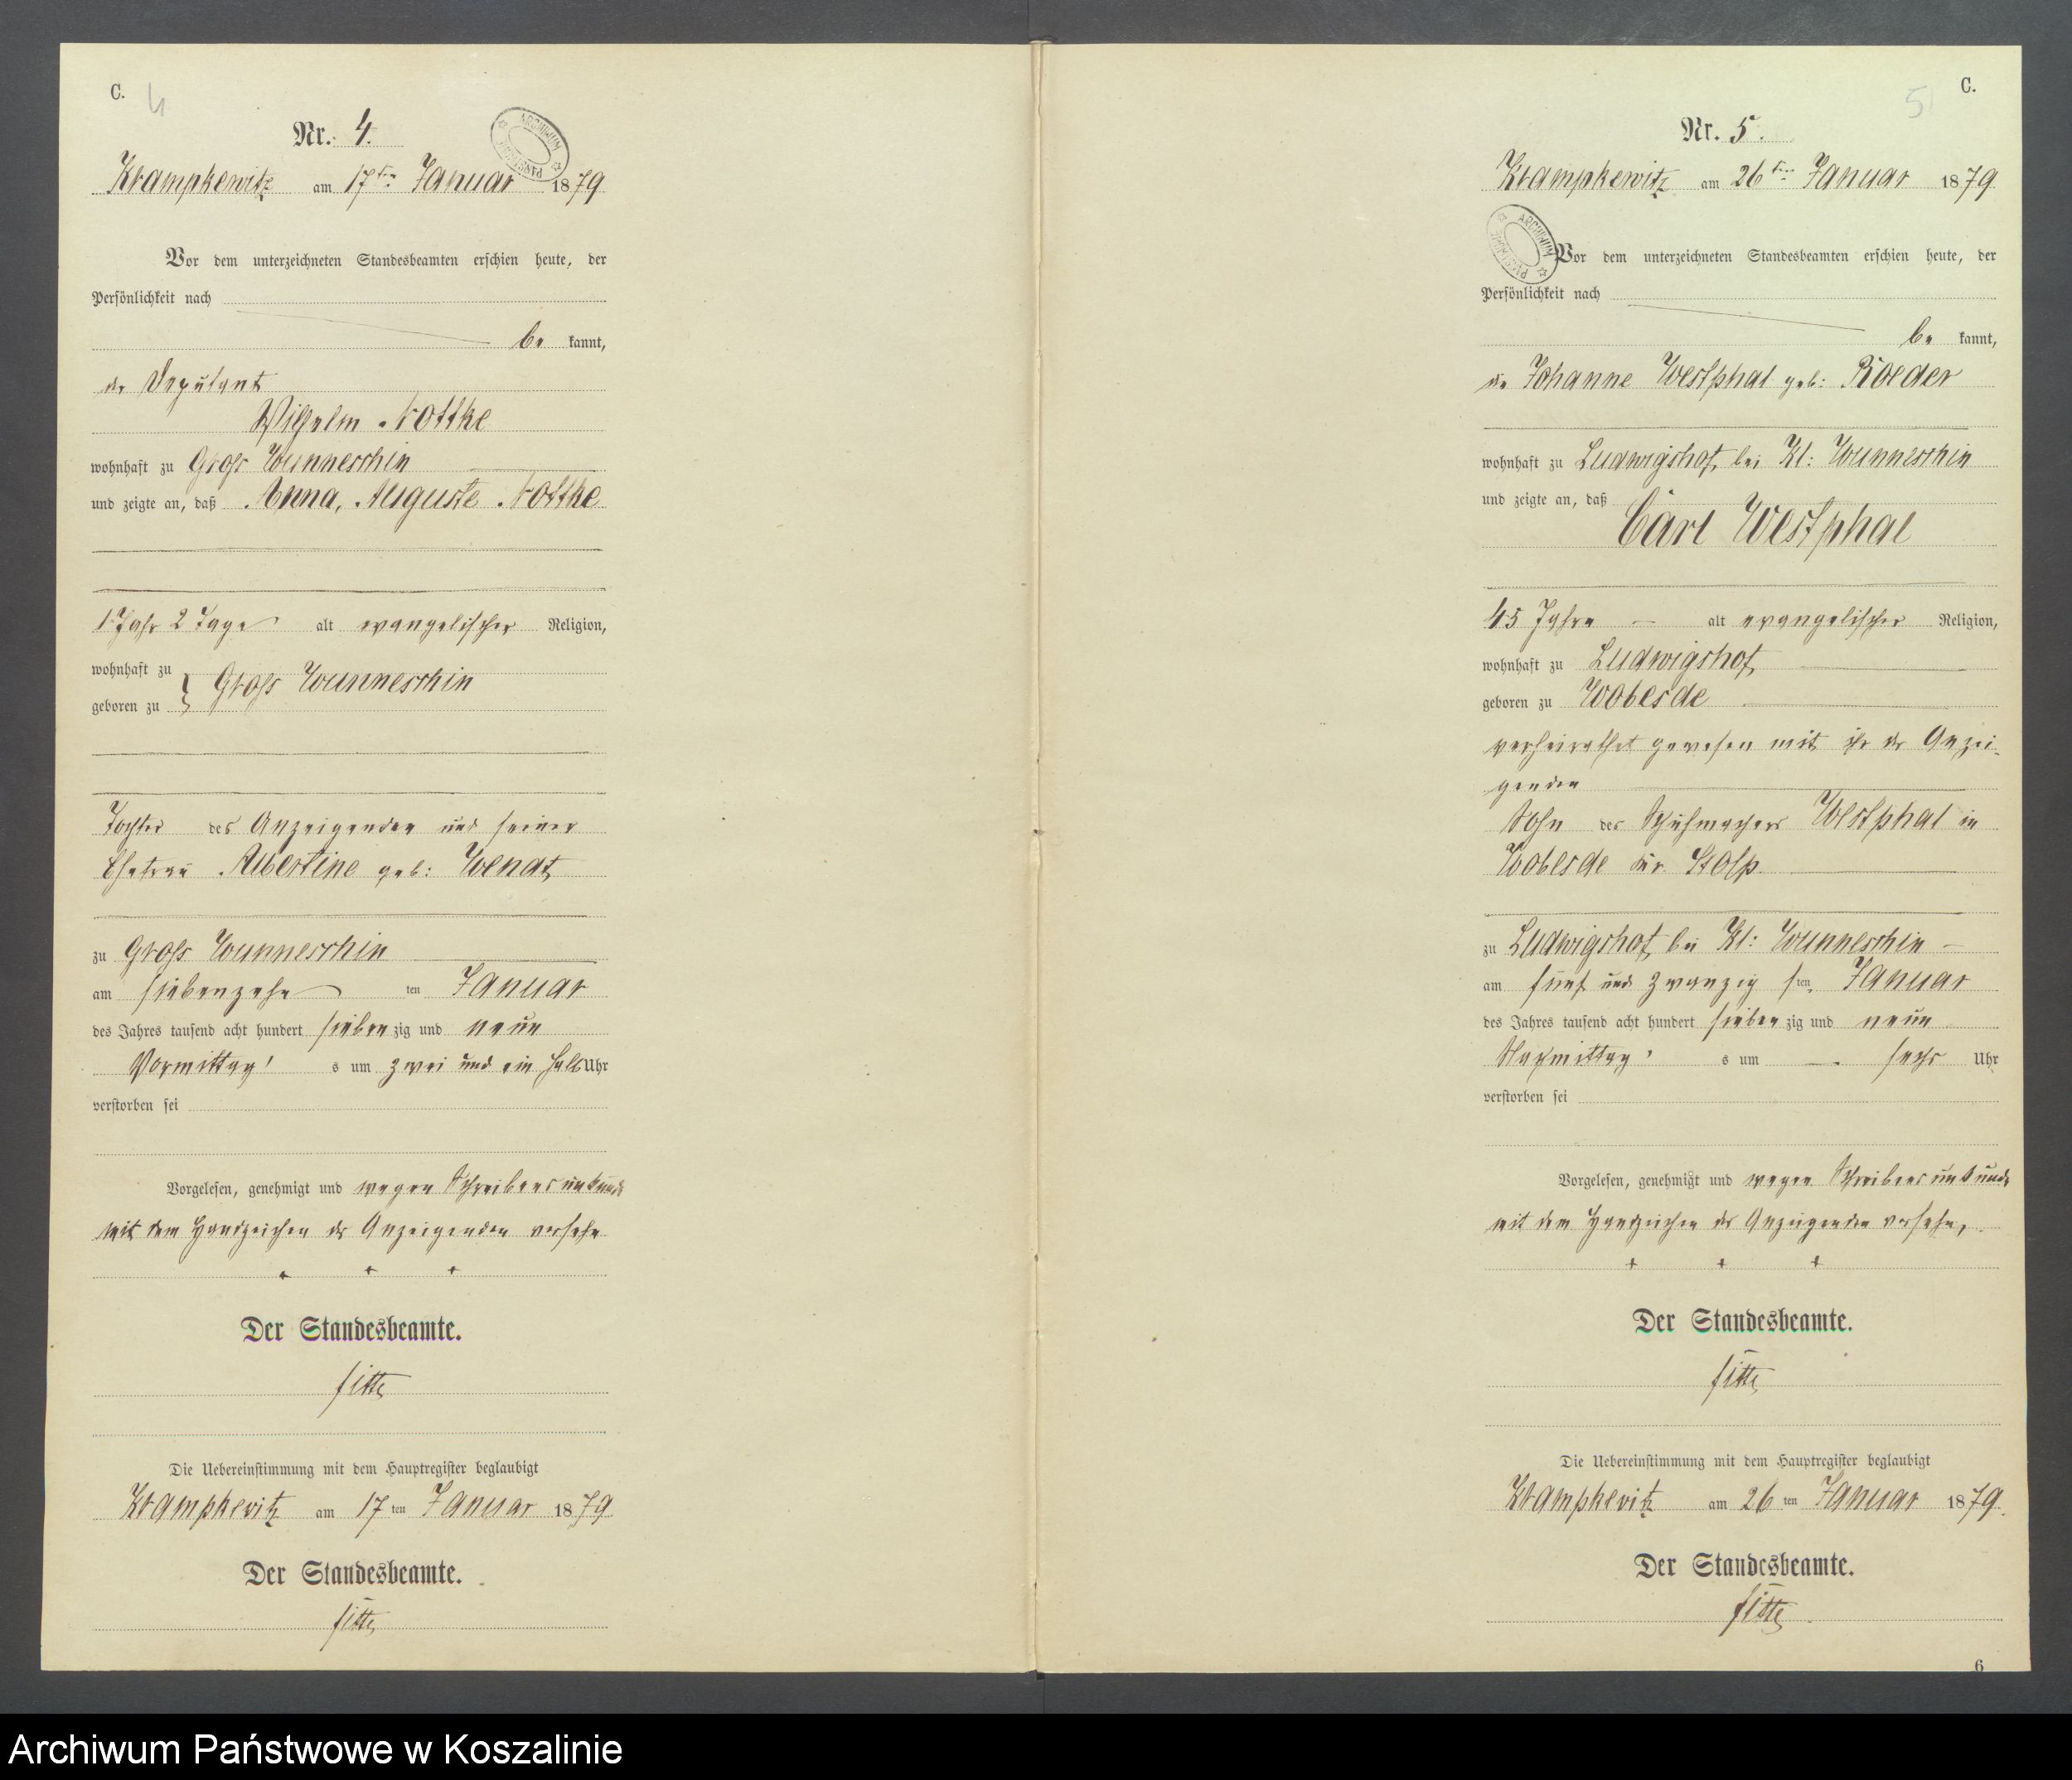 C.
4
Nr. 4.
ARCHIWUM PAŃSTWOWE
Krampkewitz am 17ten Januar 1879
Vor dem unterzeichneten Standesbeamten erschien heute, der
Persönlichkeit nach
be kannt,
der Deputant
Wilhelm Nottke
wohnhaft zu Gross Wunneschin
und zeigte an, daß Anna, Auguste Nottke
1 Jahr 2 Tage alt evangelischer Religion,
wohnhaft zu
geboren zu } Gross Wunneschin
Tochter des Anzeigenden und seiner
Ehefrau Albertine geb: Wendt
zu Gross Wunneschin
am siebenzehn ten Januar
des Jahres tausend acht hundert sieben zig und neun
Vormittag s um zwei und ein halb Uhr
verstorben sei
Vorgelesen, genehmigt und wegen Schreibensunkunde
mit dem Handzeichen des Anzeigenden versehn
+ + +
Der Standesbeamte.
Die Uebereinstimmung mit dem Hauptregister beglaubigt
Krampkewitz am 17 ten Januar 1879
Der Standesbeamte.
C.
5
Nr. 5.
Krampkewitz am 26ten Januar 1879
ARCHIWUM PAŃSTWOWE
Vor dem unterzeichneten Standesbeamten erschien heute, der
Persönlichkeit nach
be kannt,
die Johanne Westphal geb: Roeder
wohnhaft zu Ludwigshof bei Kl: Wunneschin
und zeigte an, daß
Carl Westphal
45 Jahre — alt evangelischer Religion,
wohnhaft zu Ludwigshof
geboren zu Wobesde
verheirathet gewesen mit ihr der Anzei-
genden
Sohn des Schuhmachers Westphal in
Wobesde Kr. Stolp
zu Ludwigshof bei Kl: Wunneschin —
am fünf und zwanzig sten Januar
des Jahres tausend acht hundert sieben zig und neun
Nachmittag s um — sechs Uhr
verstorben sei
Vorgelesen, genehmigt und wegen Schreibensunkunde
mit dem Handzeichen der Anzeigenden versehn,
+ + +
Der Standesbeamte.
Die Uebereinstimmung mit dem Hauptregister beglaubigt
Krampkewitz am 26 ten Januar 1879.
Der Standesbeamte.
6
Archiwum Państwowe w Koszalinie